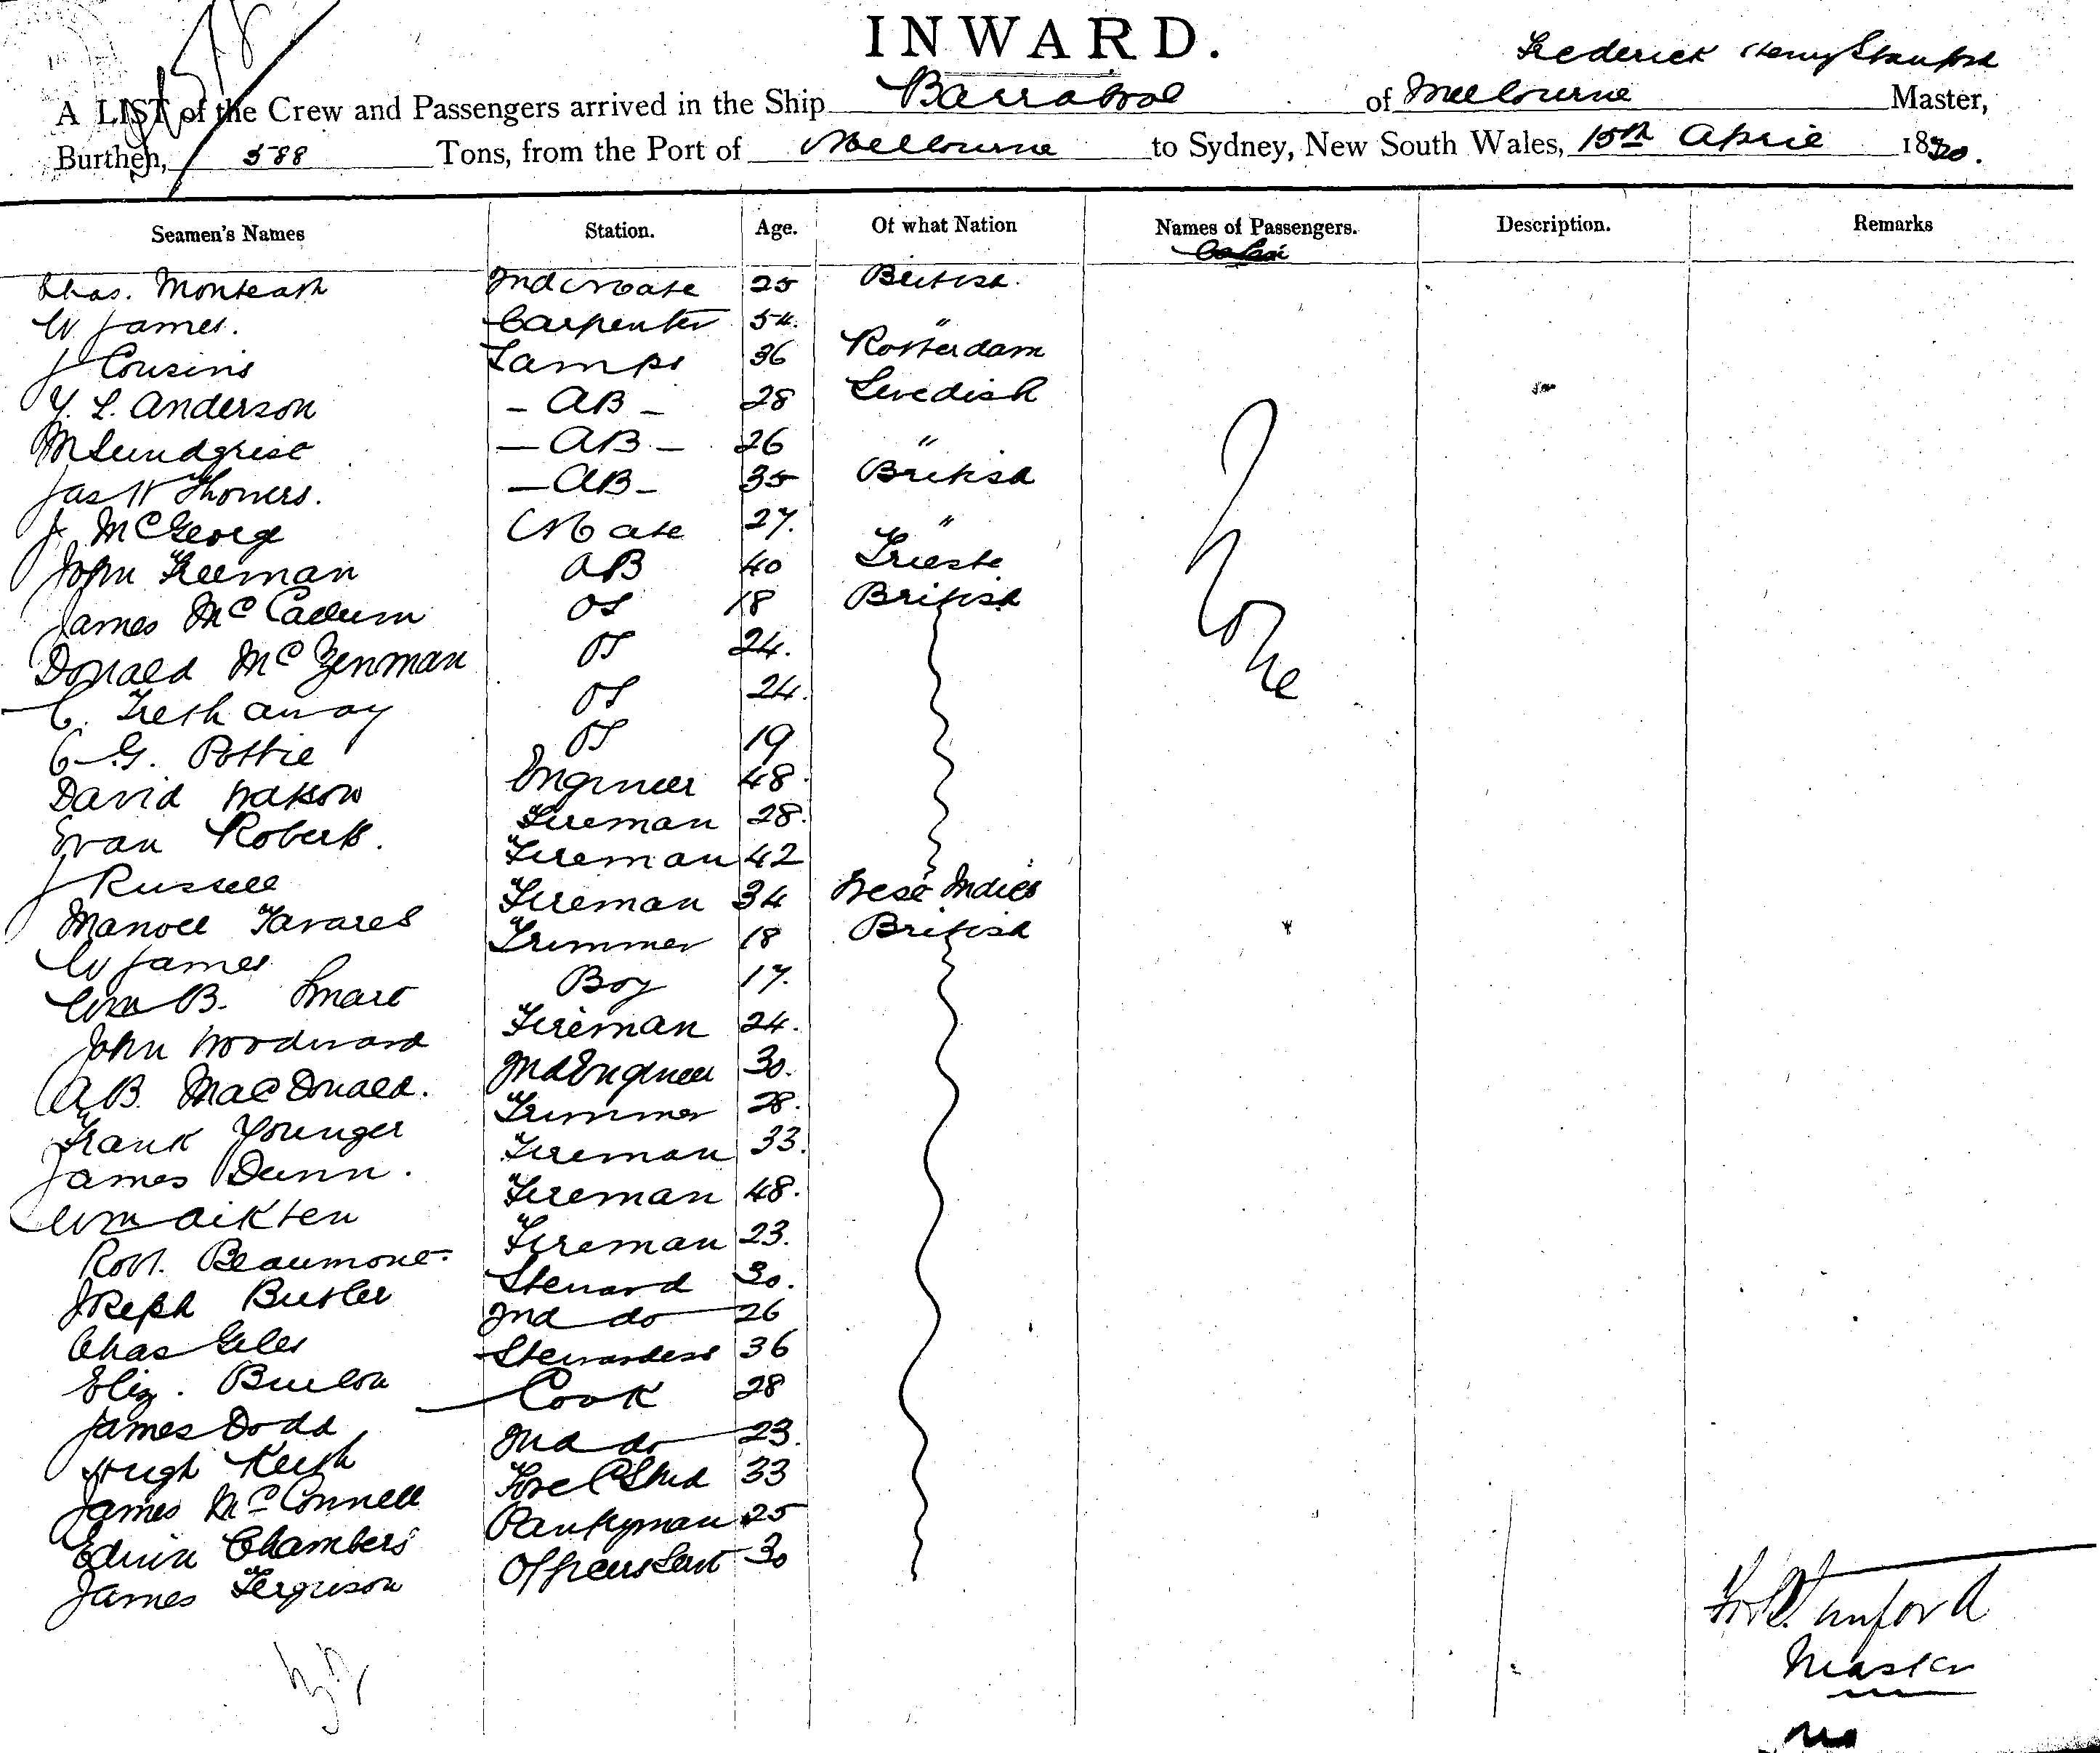 INWARD.
Frederick Henry Stanford
A LIST of the Crew and Passengers arrived in the Ship Barrabool of Melbourne Master,
Burthen, 588 Tons, from the Port of Melbourne to Sydney, New South Wales, 15th April 18
Seamen's Names Station. Age. Of what Nation Names of Passengers. Description. Remarks
Chas. Monteath 2nd Mate 25 British.
W James. Carpenter 54. "
J Cousins Lamps 36 Rotterdam
Y. L. Anderson - AB - 28 Swedish
M Lundqrist - AB - 26 "
Jas W Thomers. - AB - 35 British
J. McGeorge Mate 27. "
John Freeman AB 40 Trieste
James McCallum OS 18 British
Donald Mc OS 24.
C. Treshaway OS 24.
C. G. Pottie OS 19
David Watson Engineer 48.
Evan Roberts. Fireman 28.
J Russell Fireman 42
Manoel Tavares Fireman 34 West Indies
W James Trimmer 18 British
Wm B. Smart Boy 17.
John Woodward Fireman 24.
A.B. MacDonald. 2nd Engineer 30.
Frank Younger Trimmer 28.
James Dunn. Fireman 33.
Wm Aikten Fireman 48.
Robt. Beaumont. Fireman 23.
Joseph Butler Steward 30.
Chas Giles 2nd do 26
Eliz. Stewardess 36
James Dodd Cook 28
Hugh Keith 2nd do 23.
James McConnell Fore C Std 33
Edwin Chambers Pantryman 25
James Ferguson Officers Servt 30
None
F H Stanford
Master